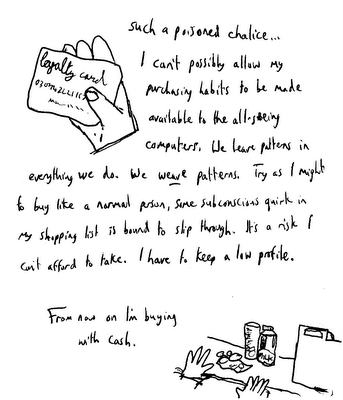 such a poisoned chalice...
loyalty card
I can't possibly allow my
purchasing habits to be made
available to the all-seeing
computers. We leave patterns in
everything we do. We weave patterns. Try as I might
to buy like a normal person, some subconscious quirk in
my shopping list is bound to slip through. It's a risk I
can't afford to take. I have to keep a low profile.
From now on I'm buying
with cash.
MILK